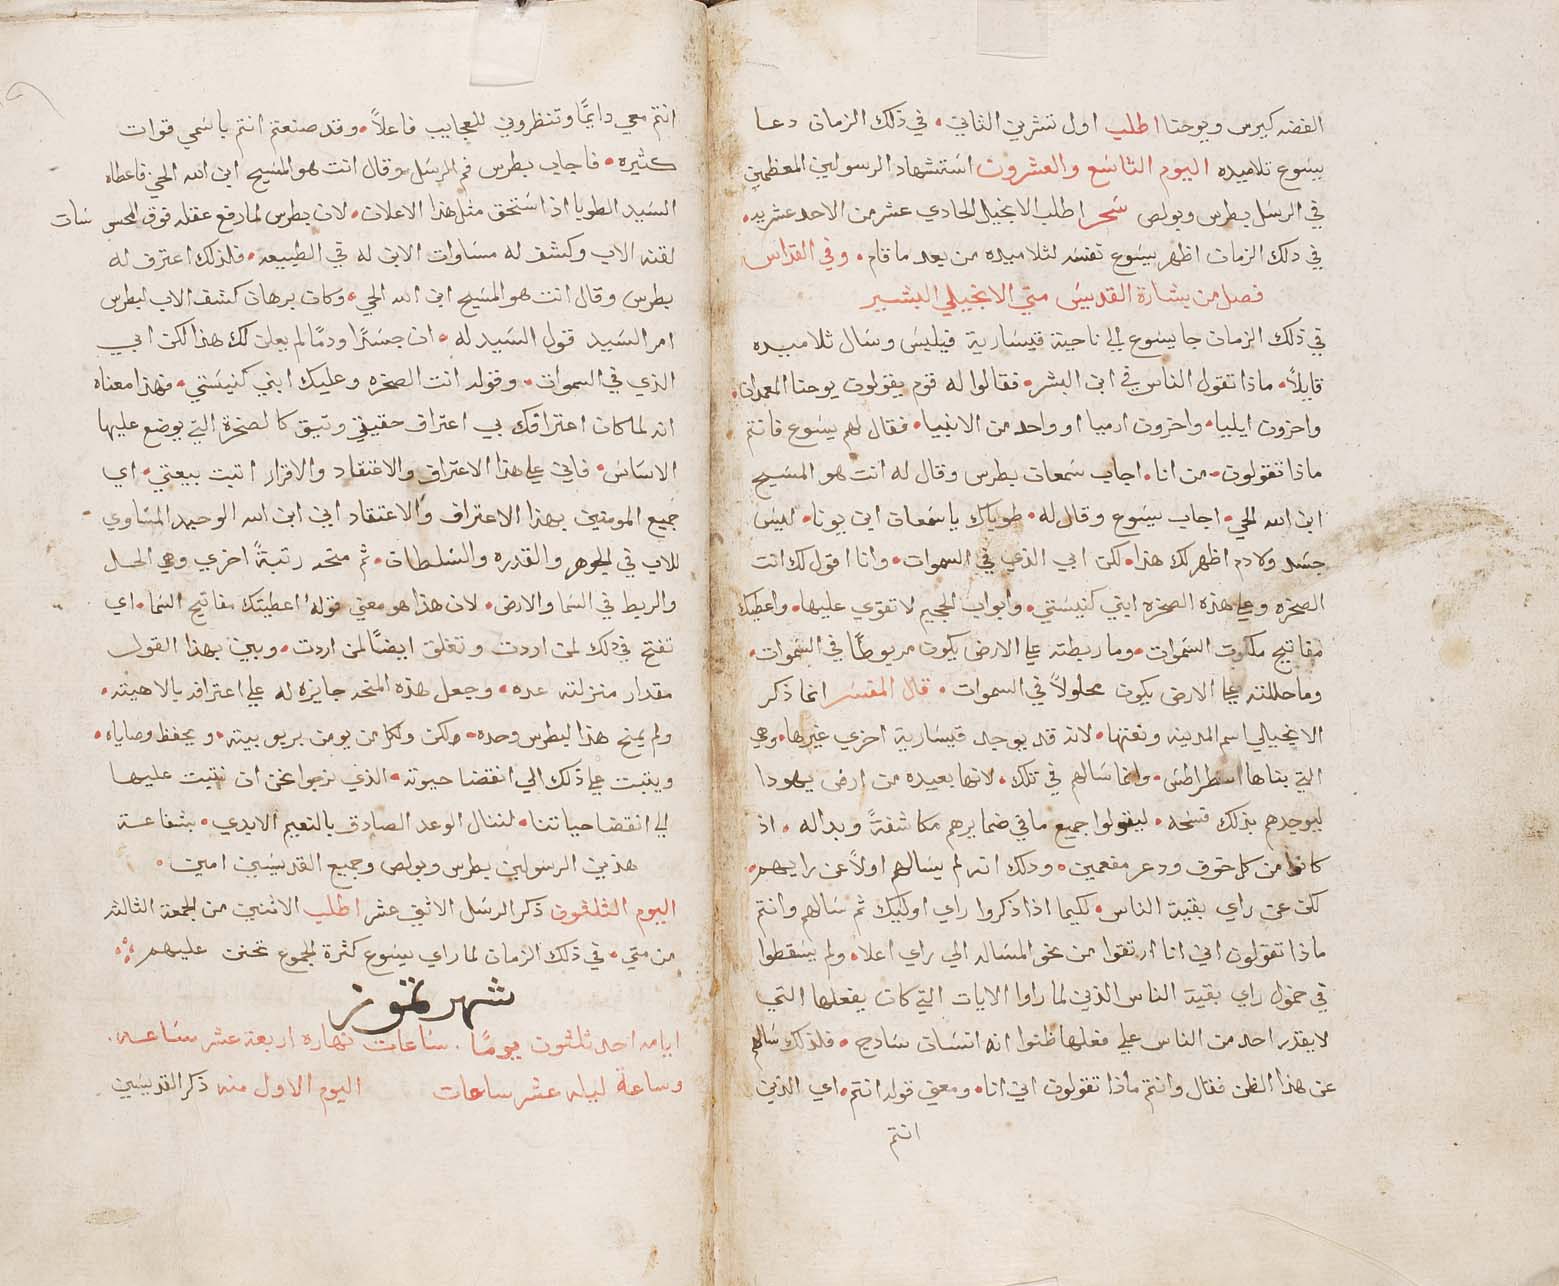 الفضه كيرس ويوحنا اطلب اول تشرين الثاني • في ذلك الزمان دعا
يسوع تلاميده اليوم التاسع والعشرون استشهاد الرسولين المعظمين
في الرسل بطرس وبولص سحر اطلب الانجيل الحادي عشر من الاحد عشريه •
في دلك الزمان اظهر يسوع نفسه لتلاميده من بعد ما قام • وفي القداس
فصل من بشارة القديس متي الانجيلي البشير
في ذلك الزمان جا يسوع الي ناحية قيسارية فيلبس وسال تلاميده
قايلاً • ماذا تقول الناس في ابن البشر • فقالوا له قوم يقولون يوحنا المعمدان •
واخرون ايليا • واخرون ارميا او واحد من الانبيا • فقال لهم يسوع فانتم
ماذا تقولون • من انا • اجاب سمعان بطرس وقال له انت هو المسيح
ابن الله الحي • اجاب يسوع وقال له • طوباك ياسمعان ابن يونا • ليس
جسد ولا دم اظهر لك هذا • لكن ابي الذي في السموات • وانا اقول لك انت
الصخره وعلي هذه الصخره ابني كنيستي • وابواب الجحيم لا تقوي عليها • واعطيك
مفاتيح ملكوت السموات • وما ربطته علي الارض يكون مربوطًا في السموات •
وما حللته علي الارض يكون محلولاً في السموات • قال المفسر انما ذكر
الانجيلي اسم المدينه ونعتها • لانه قد يوجد قيسارية اخري غيرها • وهي
التي بناها اسطراطس • وانما سالهم في تلك • لانها بعيده من ارض يهودا
ليوجدهم بذلك فسحه • ليقولوا جميع ما في ضمايرهم مكاشفةً وبداله • اذ
كانوا من كل خوف ودعر مفعمين • ودلك انه لم يسالهم اولاً عن رايهم •
لكن عن راي بقية الناس • لكيما اذا ذكروا راي اوليك ثم سالهم وانتم
ماذا تقولون اني انا ارتقوا من نحو المساله الي راي اعلا • ولم يسقطوا
في خمول راي بقية الناس الذين لما راوا الايات التي كان يفعلها التي
لا يقدر احد من الناس علي فعلها ظنوا انه انسان سادج • فلذلك سالهم
عن هذا الظن فقال وانتم ماذا تقولون اني انا • ومعني قوله انتم • اي الذين
انتم
انتم معي دايمًا وتنظروني للعجايب فاعلاً • وقد صنعتم انتم باسمي قوات
كثيره • فاجاب بطرس فم الرسل وقال انت هو المسيح ابن الله الحي فاعطاه
السيد الطوبا اذ استحق مثل هذا الاعلان • لان بطرس لما رفع عقله فوق المحسوسات
لقنه الاب وكشف له مساوات الابن له في الطبيعه • فلذلك اعترف له
بطرس وقال انت هو المسيح ابن الله الحي • وكان برهان كشف الاب لبطرس
امر السيد قول السيد له • ان جسدًا ودمًا لم يعلن لك هذا لكن ابي
الذي في السموات • وقوله انت الصخره وعليك ابني كنيستي • فهذا معناه
انه لما كان اعترافك بي اعتراف حقيقي وتيق كالصخرة التي يوضع عليها
الاساس • فاني علي هذا الاعتراف والاعتقاد والاقرار اتبت بيعتي • اي
جميع المومنين بهذا الاعتراف والاعتقاد اني ابن الله الوحيد المساوي
للاب في الجوهر والقدره والسلطان • ثم منحه رتبةً اخري وهي الحل
والربط في السما والارض • لان هذا هو معني قوله اعطيتك مفاتيح السما • اي
تفتح في ذلك لمن اردت وتغلق ايضًا لمن اردت • وبين بهذا القول
مقدار منزلته عده • وجعل هذه المنحه جايزه له علي اعترافه بالاهيته •
ولم يمنح هذا لبطرس وحده • ولكن ولكل من يومن بربوبيته • ويحفظ وصاياه •
ويتبت علي ذلك الي انقضا حيوته • الذي نرجوا نحن ان نتبت عليها
الي انقضا حياتنا • لننال الوعد الصادق بالنعيم الابدي • بشفاعة
هذين الرسولين بطرس وبولص وجميع القديسين امين •
اليوم الثلثون ذكر الرسل الاثني عشر اطلب الاثنين من الجمعة الثالثه
من متي • في ذلك الزمان لما راي يسوع كثرة الجموع تحنن عليهم
شهر تموز
ايامه احد ثلثون يومًا • ساعات نهاره اربعة عشر ساعه •
وساعة ليله عشر ساعات اليوم الاول منه ذكر القديسين